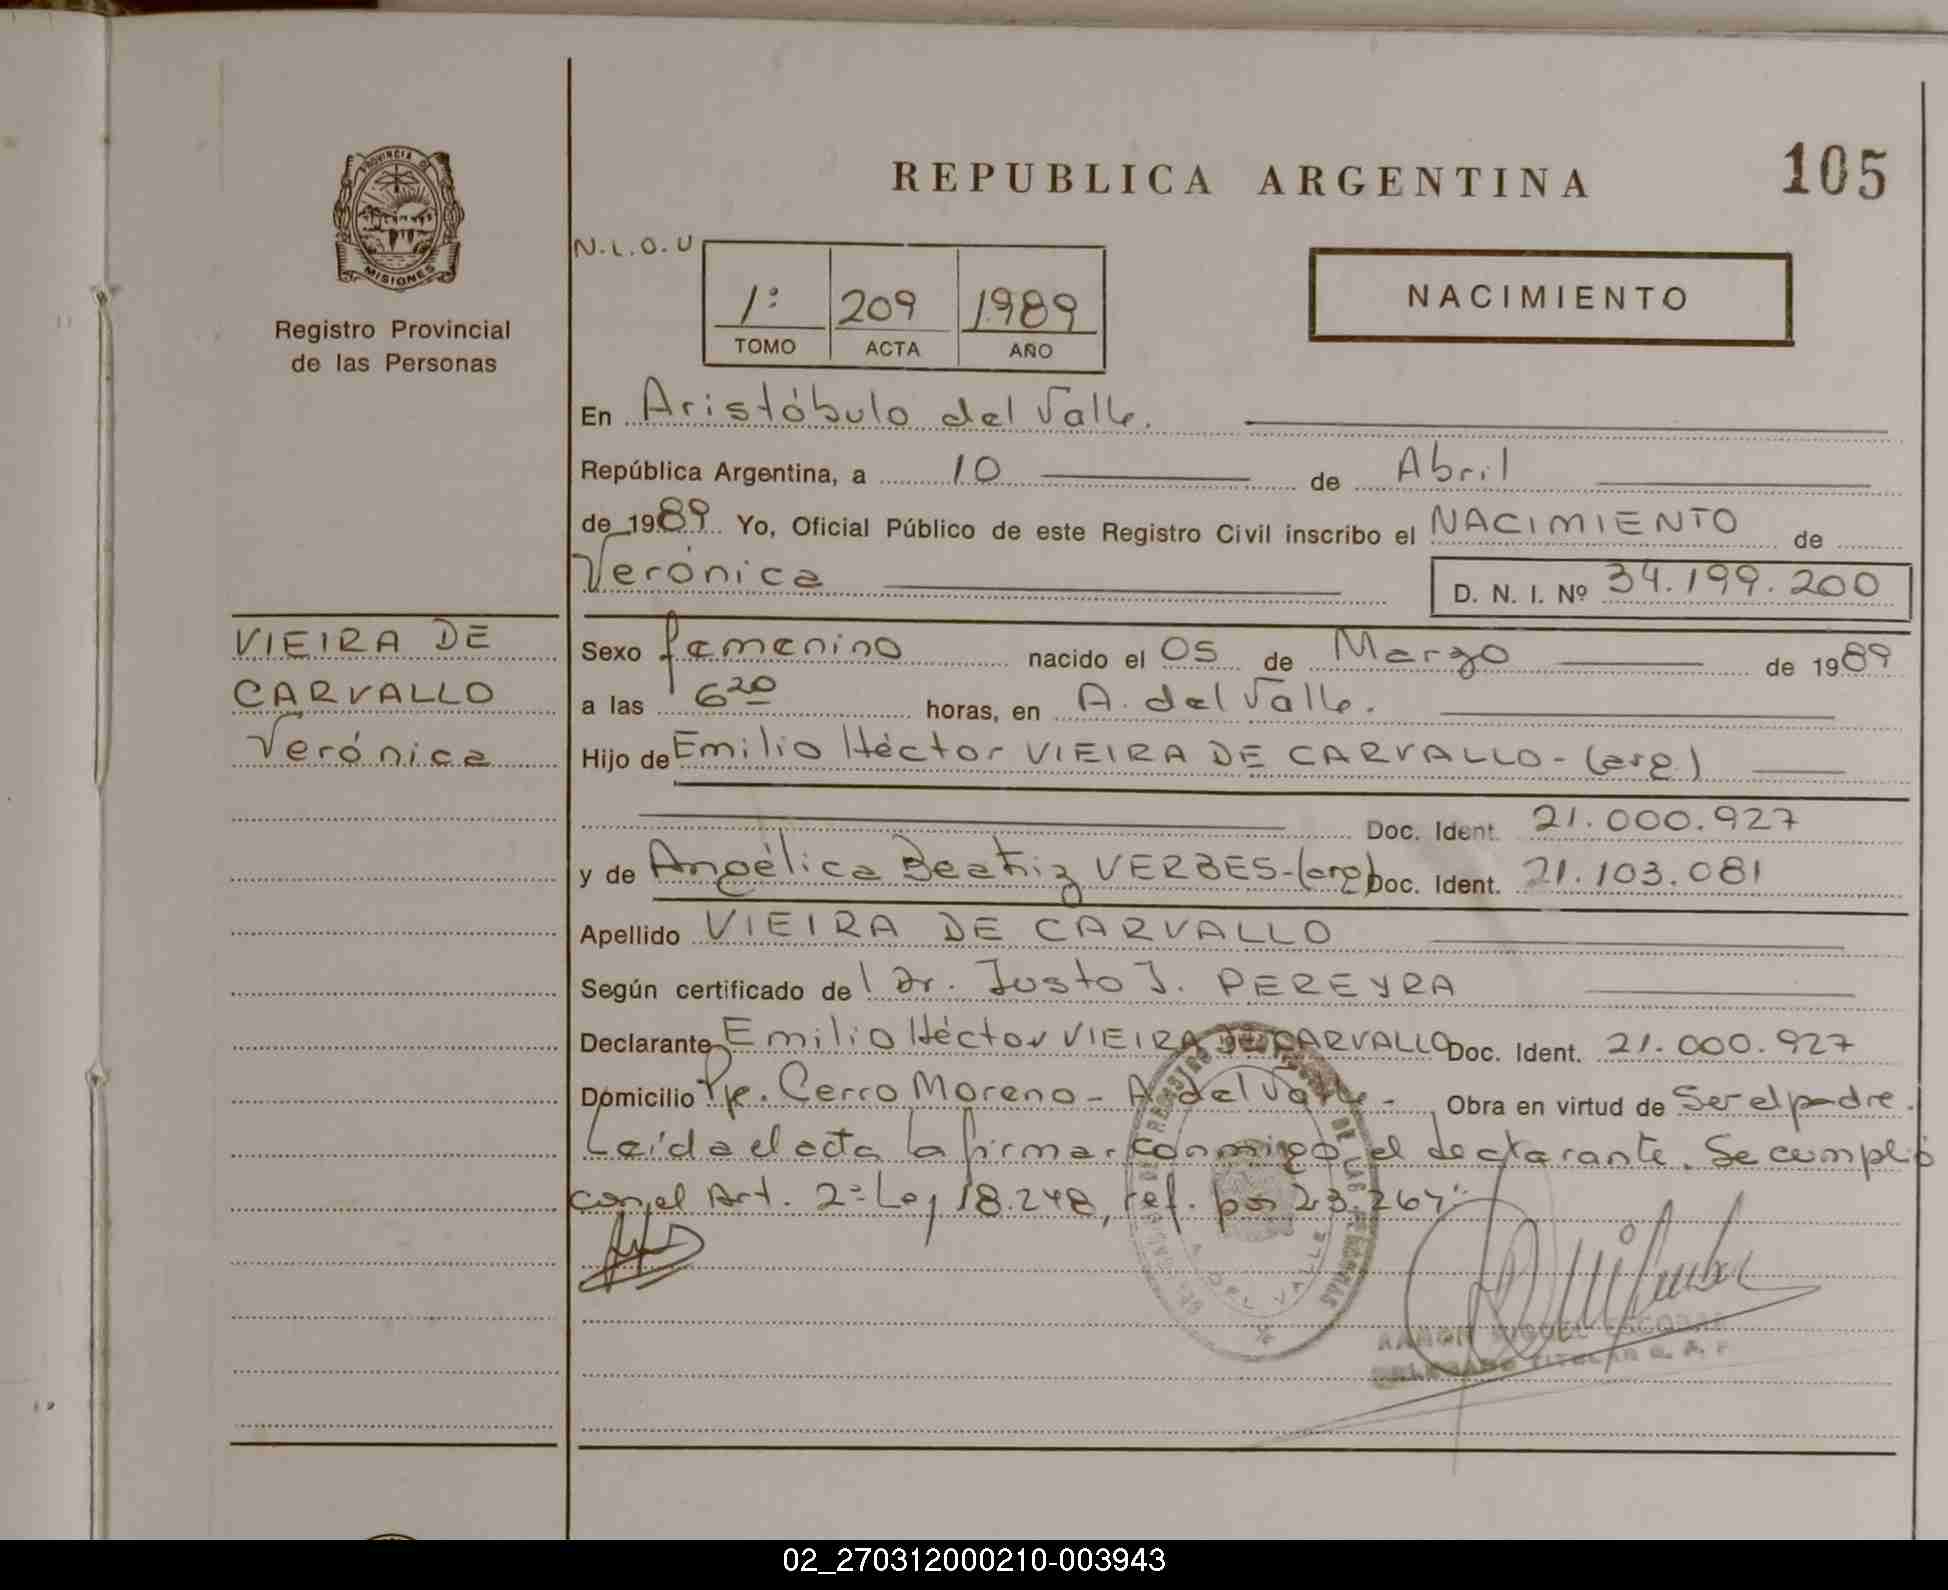 PROVINCIA DE
MISIONES
Registro Provincial
de las Personas
REPUBLICA ARGENTINA
105
N.L.O.U
1º 209 1989
TOMO ACTA AÑO
NACIMIENTO
En Aristóbulo del Valle.
República Argentina, a 10 de Abril
de 1989 Yo, Oficial Público de este Registro Civil inscribo el NACIMIENTO de
Verónica D. N. I. Nº 34.199.200
VIEIRA DE
CARVALLO
Verónica
Sexo femenino nacido el 05 de Marzo de 1989
a las 6 20 horas, en A. del Valle.
Hijo de Emilio Héctor VIEIRA DE CARVALLO - (arg)
Doc. Ident. 21.000.927
y de Angélica Beatriz VERBES - (arg) Doc. Ident. 21.103.081
Apellido VIEIRA DE CARVALLO
Según certificado del Dr. Justo J. PEREYRA
Declarante Emilio Héctor VIEIRA DE CARVALLO Doc. Ident. 21.000.927
Domicilio Pje. Cerro Moreno - A. del Valle - Obra en virtud de Ser el padre.
Leída el acta la firma conmigo el declarante. Se cumplió
con el Art. 2º Ley 18.248, ref. por 23.264.
A. DEL VALLE
RAMON MIGUEL ESCOBAR
DELEGADO TITULAR
02_270312000210-003943